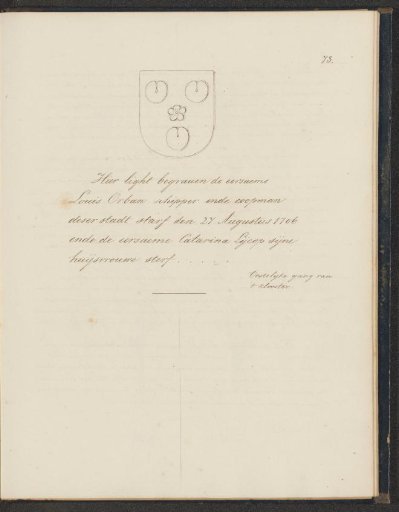 73.
Hier light begraven de eersaeme
Louis Orban schipper ende coopman
deser stadt starf den 27 Augustus 1706
ende de eersaeme Catarina Lijcops sijne
huijsvrouwe sterf . . . . .
Oostelijke gang van
't klooster